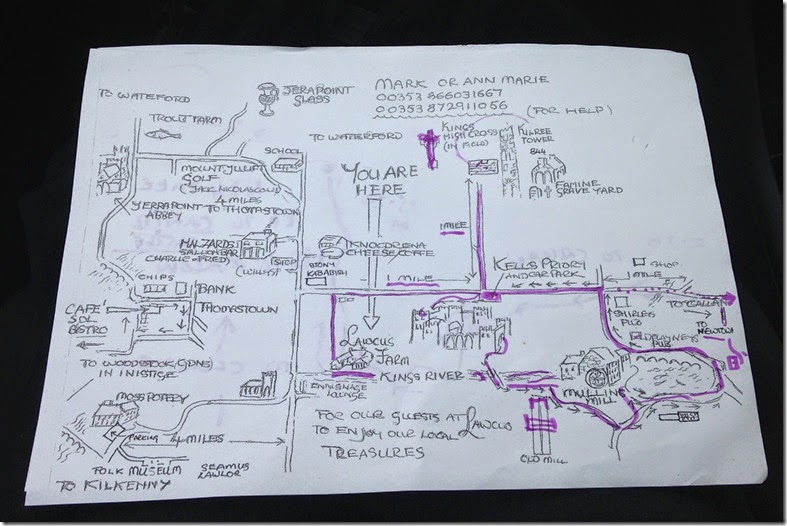 TO WATEFORD
JERAPOINT
GLASS
MARK OR ANN MARIE
00353 866031667
00353 872911056
(FOR HELP)
TROUT FARM
TO WATERFORD
KINGS
HIGH CROSS
(IN FIELD)
KILREE
TOWER
844
FAMINE
GRAVE YARD
SCHOOL
MOUNT JULIET
GOLF
(JACK NICOLASCOUS)
4 MILES
YERRAPOINT TO THOMASTOWN
ABBEY
YOU ARE
HERE
1 MILE
SALLON BAR
CHARLIE OR FRED)
(WILLYS)
SHOP
KNOCDRENA
CHEESE COFFE
STONY
1 MILE
KELLS PRIORY
AND CAR PARK
SHOP
1 MILE
CHIPS
BANK
THOMASTOWN
CAFÉ
SOL
BISTRO
TO CALLAN
SHIRLES
PUB
TO
PUB
LAWCUS
FARM
TO WOODSTOCK (GDNS)
IN INISTIGE
KINGS RIVER
LOUNGE
MULLINS
MILL
MOSS POTERY
PARKING
4 MILES
FOR OUR GUESTS AT LAWCUS
TO ENJOY OUR LOCAL
TREASURES
OLD MILL
FOLK MUSEUM
SEAMUS
LAWLOR
TO KILKENNY